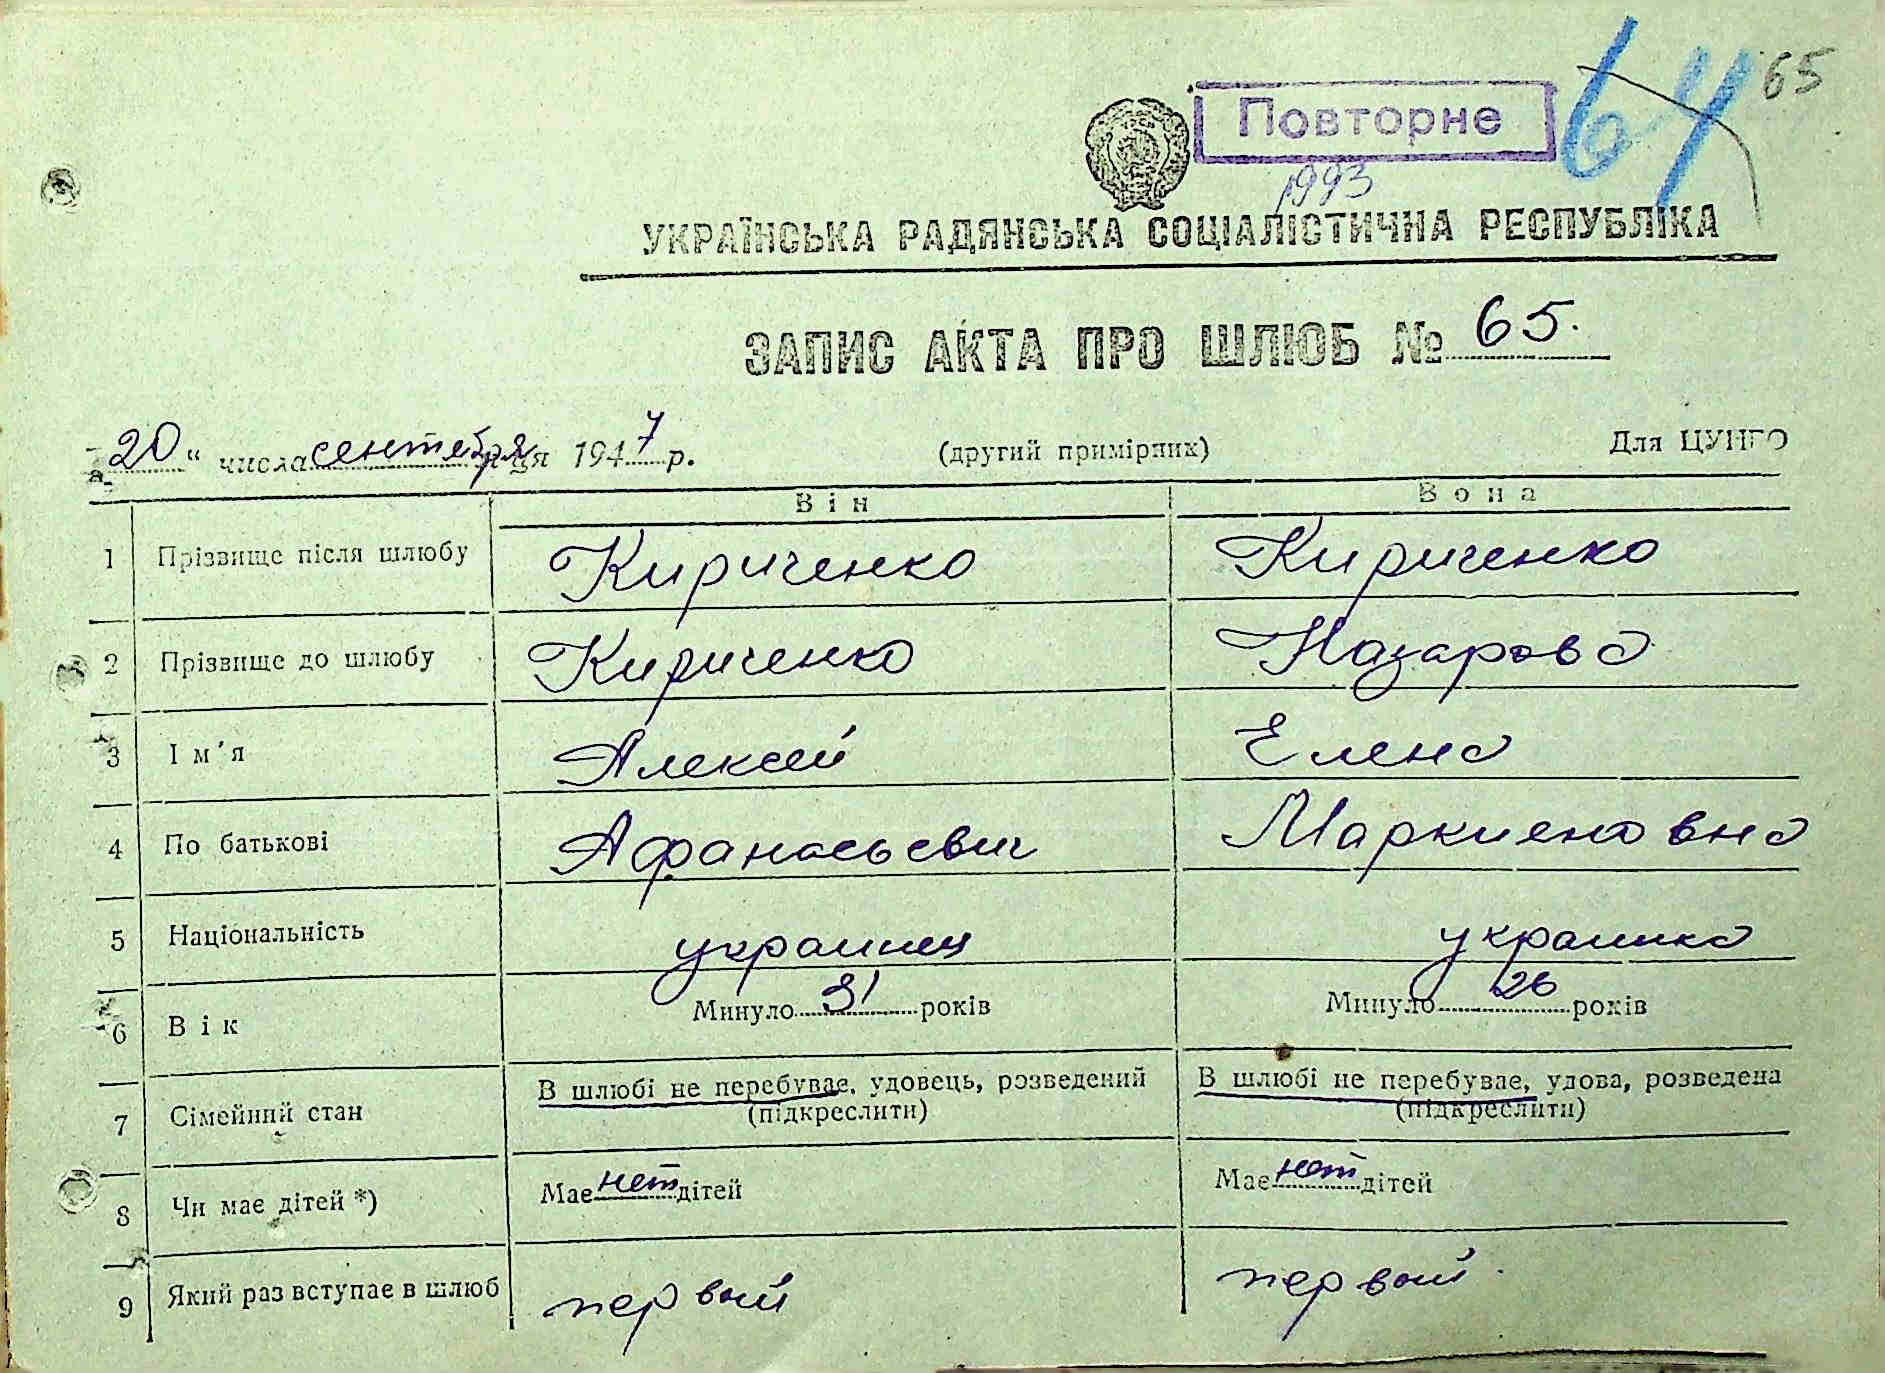 Повторне
64 65
1993
УКРАЇНСЬКА РАДЯНСЬКА СОЦІАЛІСТИЧНА РЕСПУБЛІКА
ЗАПИС АКТА ПРО ШЛЮБ № 65.
„20“ числа сентября місяця 1947 р. (другий примірник) Для ЦУНГО
Він Вона
1 Прізвище після шлюбу Кириченко Кириченко
2 Прізвище до шлюбу Кириченко Назарова
3 Ім'я Алексей Елена
4 По батькові Афанасьевич Маркиеновна
5 Національність украинец украинка
6 Вік Минуло 31 років Минуло 26 років
7 Сімейний стан В шлюбі не перебуває, удовець, розведений В шлюбі не перебуває, удова, розведена
(підкреслити) (підкреслити)
8 Чи має дітей *) Має нет дітей Має нет дітей
9 Який раз вступає в шлюб первый первый